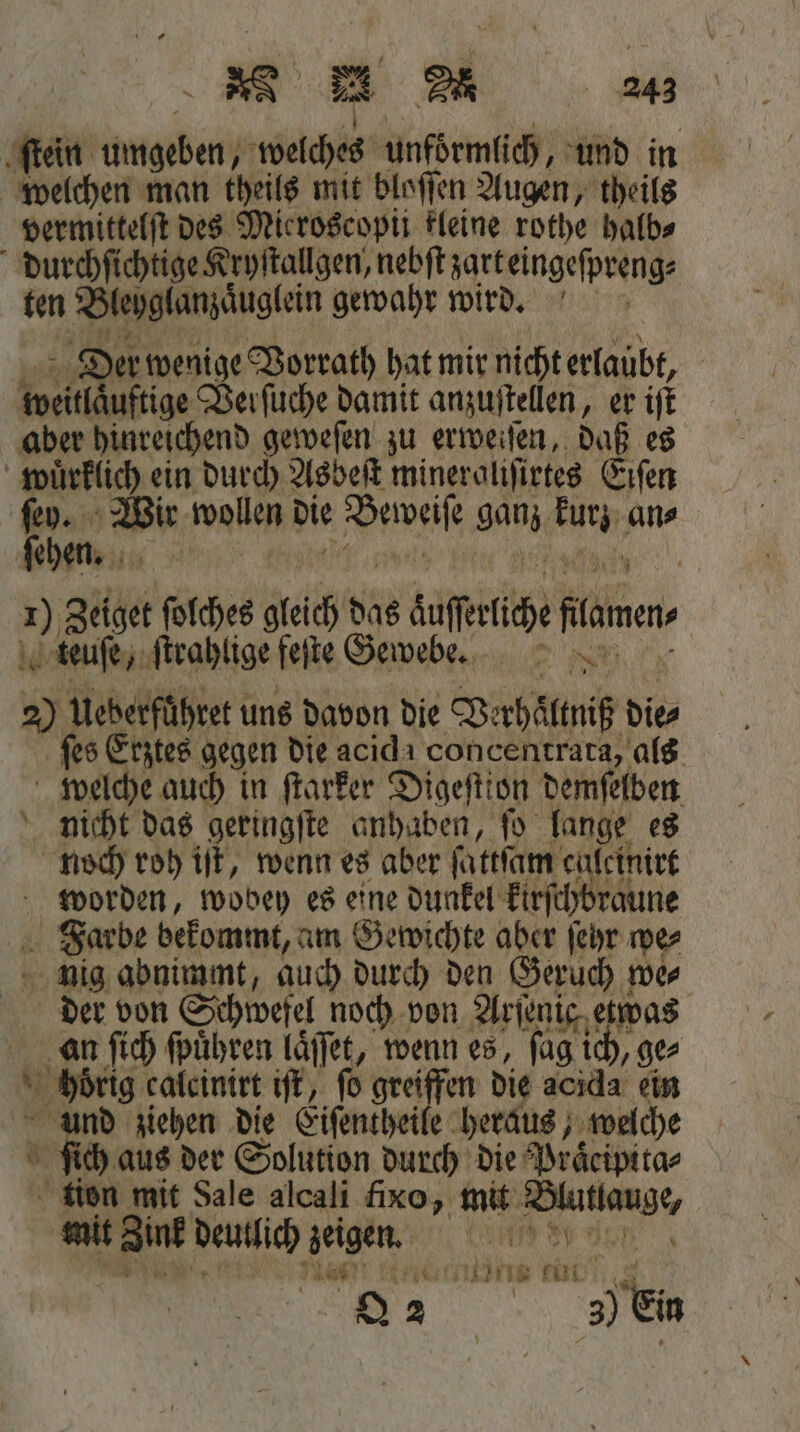 243
ſtein umgeben, welches unfoͤrmlich, und in
welchen man theils mit bloſſen Augen, theils
vermittelſt des Microscopii kleine rothe halb⸗
durchſichtige Kryſtallgen, nebſt zart eingeſpreng⸗
ten Bleyglanzaͤuglein gewahr wird.
Der wenige Vorrath hat mir nicht erlaubt,
weitlaͤuftige Verſuche damit anzuſtellen, er iſt
aber hinreichend geweſen zu erweiſen, daß es
wuͤrklich ein durch Asbeſt mineraliſirtes Eiſen
ſey. Wir wollen die Beweiſe ganz kurz an⸗
ſehen.
1) Zeiget ſolches gleich das aͤuſſerliche filamen⸗
teuſe, ſtrahlige feſte Gewebe.
2) Ueberfuͤhret uns davon die Verhaͤltniß die⸗
ſes Erztes gegen die acida concentrata, als
welche auch in ſtarker Digeſtion demſelben
nicht das geringſte anhaben, ſo lange es
noch roh iſt, wenn es aber ſattſam calcinirt
worden, wobey es eine dunkel kirſchbraune
Farbe bekommt, am Gewichte aber ſehr we⸗
nig abnimmt, auch durch den Geruch we⸗
der von Schwefel noch von Arſenic etwas
an ſich ſpuͤhren laͤſſet, wenn es, ſag ich, ge⸗
hoͤrig calcinirt iſt, ſo greiffen die acida ein
und ziehen die Eiſentheile heraus, welche
ſich aus der Solution durch die Praͤcipita⸗
tion mit Sale alcali fixo, mit Blutlauge,
mit Zink deutlich zeigen.
Q 2 3) Ein